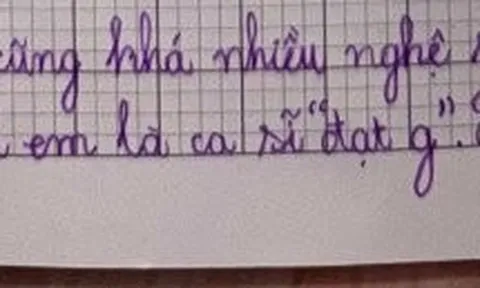 cũng khá nhiều nghệ
em là ca sĩ "đạt g".